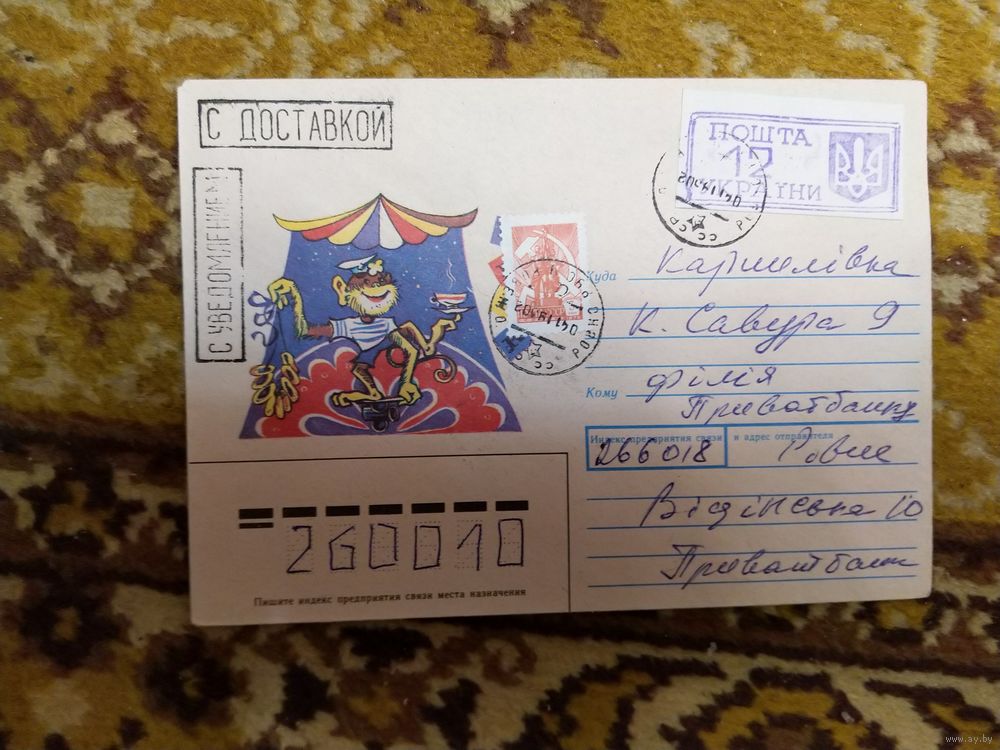 С ДОСТАВКОЙ
С УВЕДОМЛЕНИЕМ
ПОШТА
12
УКРАЇНИ
СССР
РОВНО
СССР
Куда
Кармелівка
К. Савура 9
Кому
філія
Приватбанку
Индекс предприятия связи и адрес отправителя
266018 Ровне
Відінська 10
Приватбанк
260010
Пишите индекс предприятия связи места назначения
www.ay.by